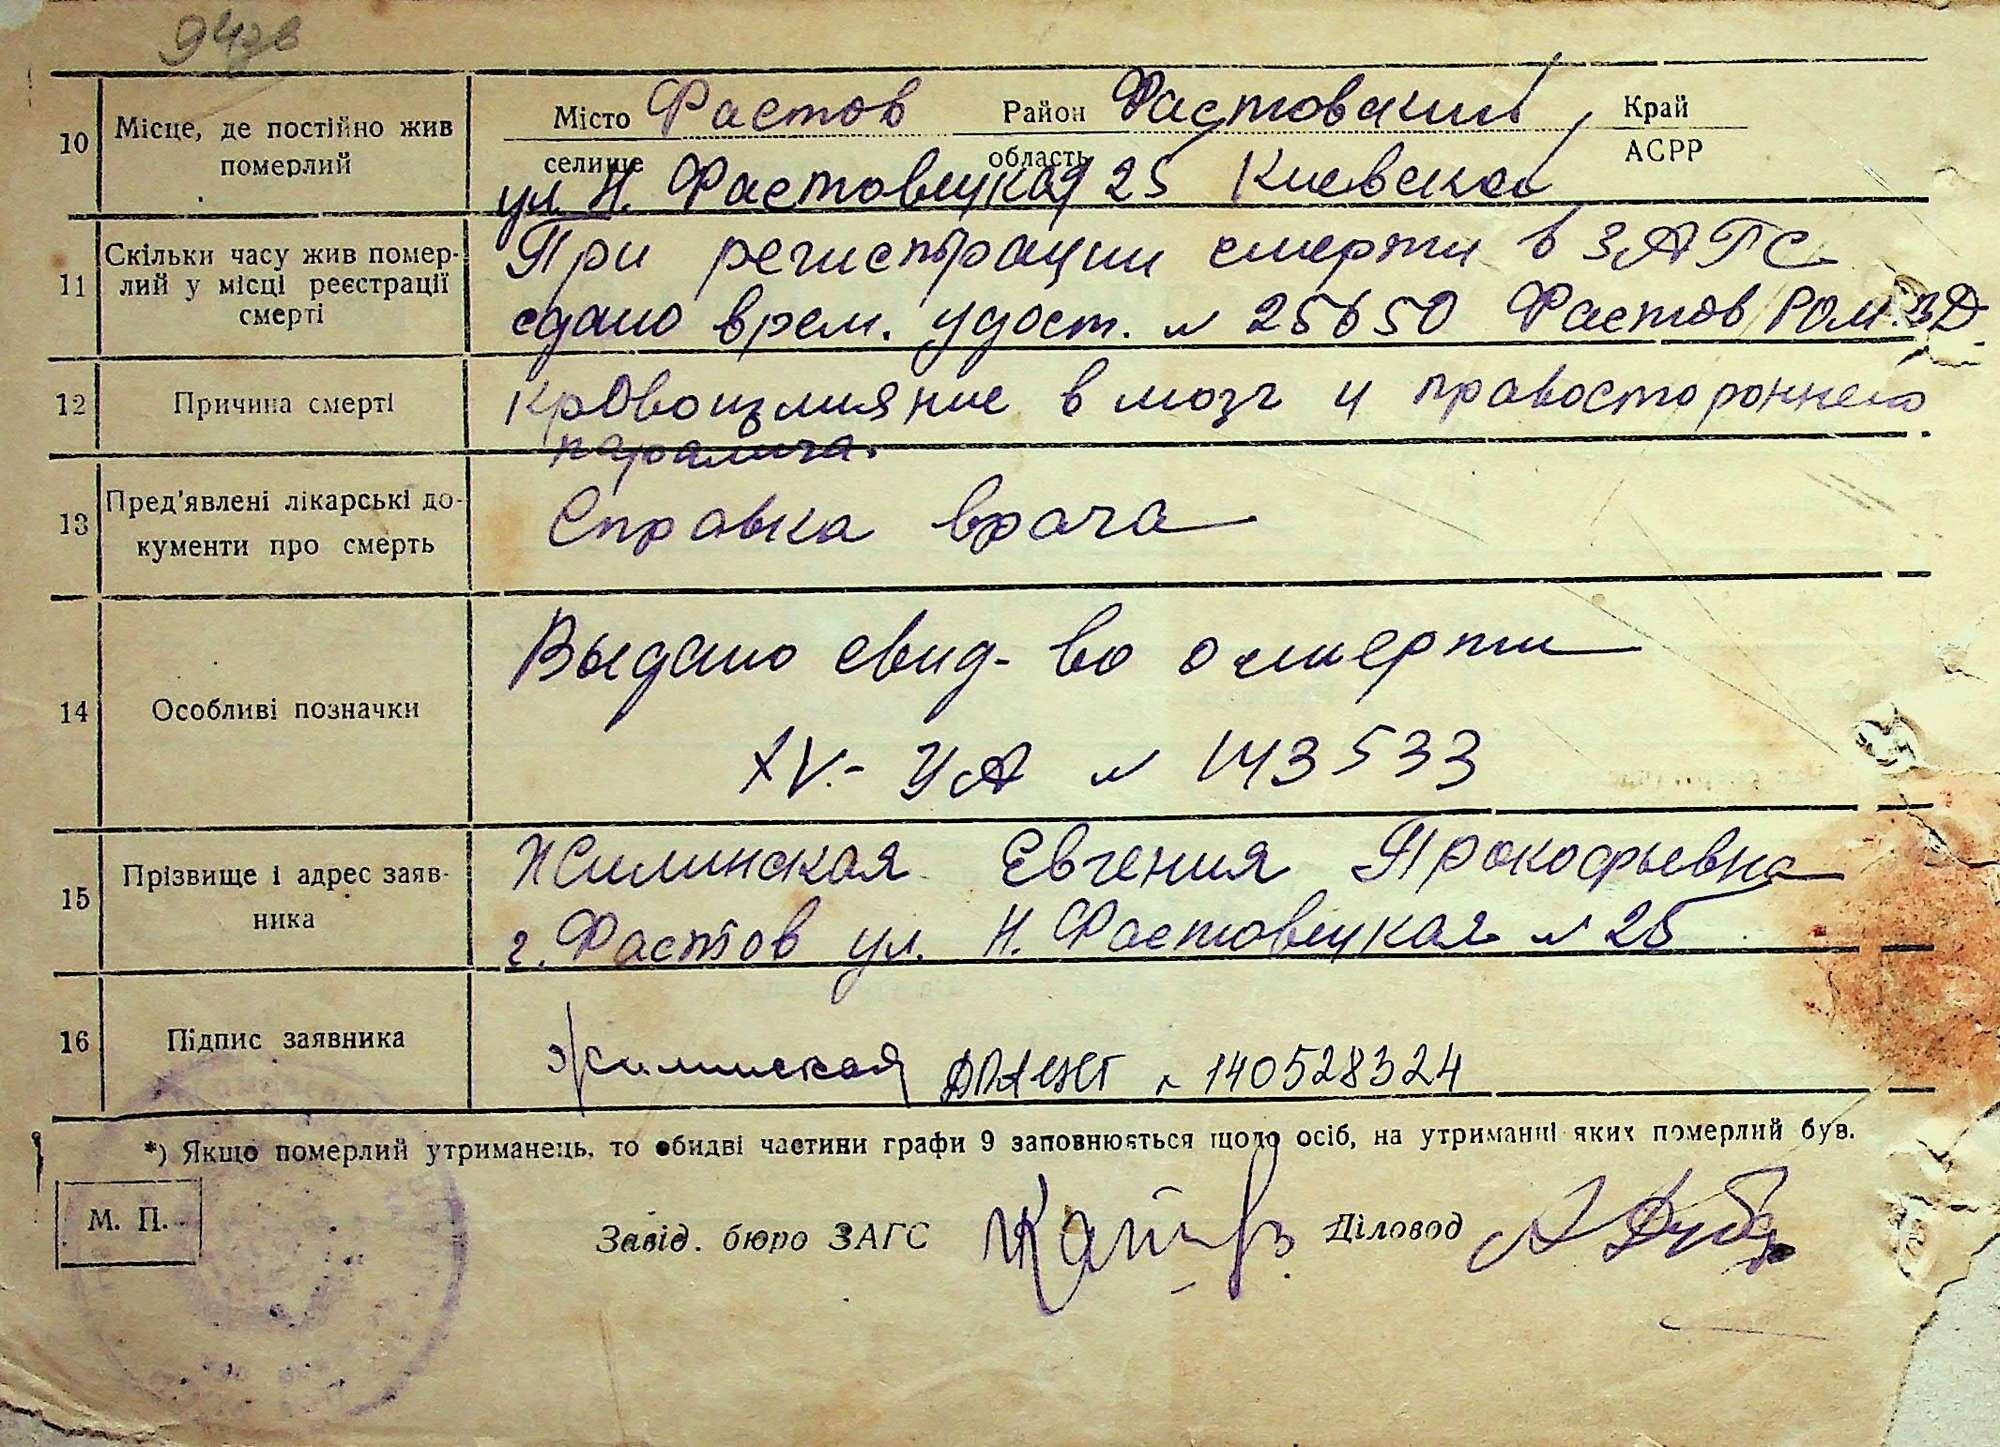 94зв
10 Місце, де постійно жив померлий
Місто Фастов Район Фастовский Край
селище область АСРР
ул. Н. Фастовецкая 25 Киевской
11 Скільки часу жив помер-
лий у місці реєстрації
смерті
При регистрации смерти в ЗАГС
сдано врем. удост. № 25650 Фастов РОМ.ВД
12 Причина смерті
кровоизлияние в мозг и правостороннего
паралича.
13 Пред'явлені лікарські до-
кументи про смерть
Справка врача
14 Особливі позначки
Выдано свид-во о смерти
XV.- УА № 143533
15 Прізвище і адрес заяв-
ника
Жилинская Евгения Прокофьевна
г. Фастов ул. Н. Фастовецкая № 25
16 Підпис заявника
Жилинская № 140528324
*) Якщо померлий утриманець, то обидві частини графи 9 заповнюється щодо осіб, на утриманні яких померлий був.
М. П.
Завід. бюро ЗАГС Діловод